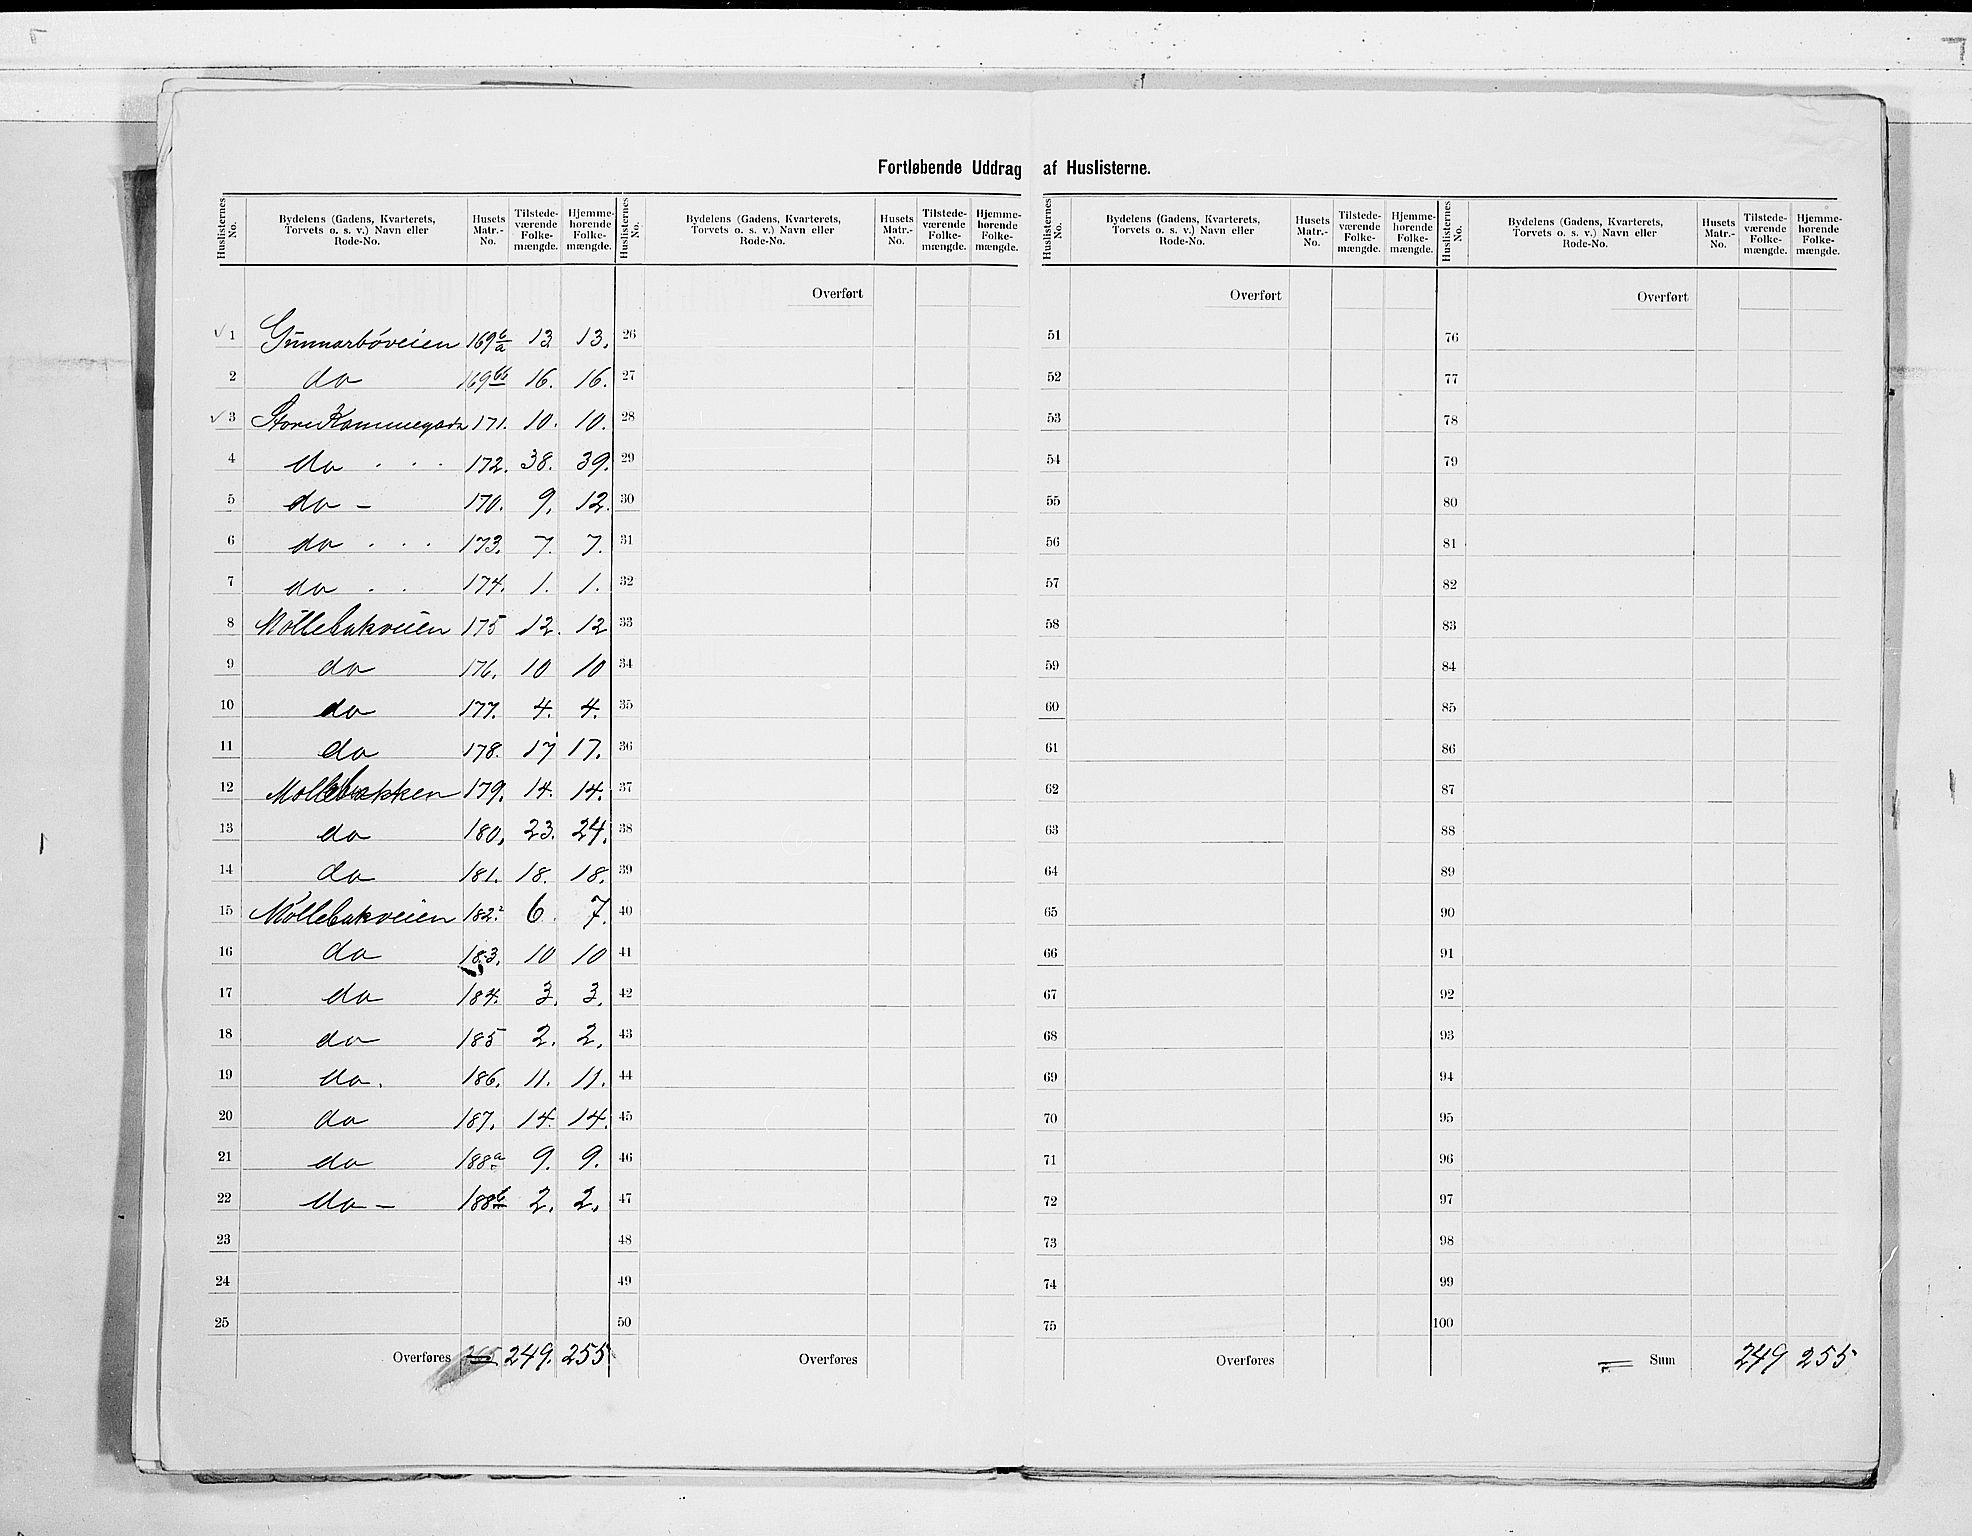 Fortløbende Uddrag af Huslisterne.
Huslisternes No. | Bydelens (Gadens, Kvarterets, Torvets o. s. v.) Navn eller Rode-No. | Husets Matr.-No. | Tilstedeværende Folkemængde. | Hjemmehørende Folkemængde. | Huslisternes No. | Bydelens (Gadens, Kvarterets, Torvets o. s. v.) Navn eller Rode-No. | Husets Matr.-No. | Tilstedeværende Folkemængde. | Hjemmehørende Folkemængde. | Huslisternes No. | Bydelens (Gadens, Kvarterets, Torvets o. s. v.) Navn eller Rode-No. | Husets Matr.-No. | Tilstedeværende Folkemængde. | Hjemmehørende Folkemængde. | Huslisternes No. | Bydelens (Gadens, Kvarterets, Torvets o. s. v.) Navn eller Rode-No. | Husets Matr.-No. | Tilstedeværende Folkemængde. | Hjemmehørende Folkemængde.
Overført Overført Overført
✓ 1 Gunnarbøveien 169 b/a 13 13. 26 51 76
2 do 16. 16. 27 52 77
✓ 3 Store 171. 10. 10. 28 53 78
4 do . . . 172. 38. 39. 29 54 79
5 do - 170. 9. 12. 30 55 80
6 do . . . 173. 7. 7. 31 56 81
7 do . . 174. 1. 1. 32 57 82
8 Møllebakveien 175 12. 12 33 58 83
9 do 176. 10 10 34 59 84
10 do 177. 4. 4. 35 60 85
11 do 178. 17 17. 36 61 86
12 Møllebakken 179. 14. 14. 37 62 87
13 do 180. 23. 24. 38 63 88
14 do 181. 18. 18. 39 64 89
15 Møllebakveien 182. 6. 7. 40 65 90
16 do 183. 10 10 41 66 91
17 do 184. 3. 3. 42 67 92
18 do 185 2. 2. 43 68 93
19 do. 186. 11. 11. 44 69 94
20 do 187. 14. 14. 45 70 95
21 do 188a 9. 9. 46 71 96
22 do - 188b 2. 2. 47 72 97
23 48 73 98
24 49 74 99
25 50 75 100
Overføres 249. 255 Overføres Overføres Sum 249 255